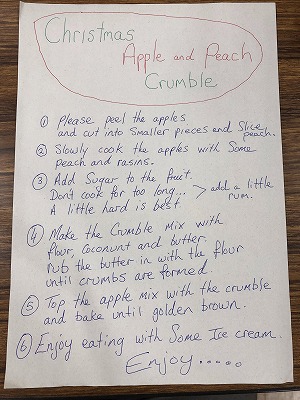 Christmas
Apple and Peach
Crumble
① Please peel the apples
and cut into Smaller pieces and Slice peach.
② Slowly cook the apples with Some
Peach and rasins.
③ Add Sugar to the fruit.
Don't cook for too long...
A little hard is best
> add a little
rum.
④ Make the Crumble Mix with
flour, Coconunt and butter.
rub the butter in with the flour
until crumbs are formed.
⑤ Top the apple mix with the crumble
and bake until golden brown.
⑥ Enjoy eating with Some Ice cream.
Enjoy.....